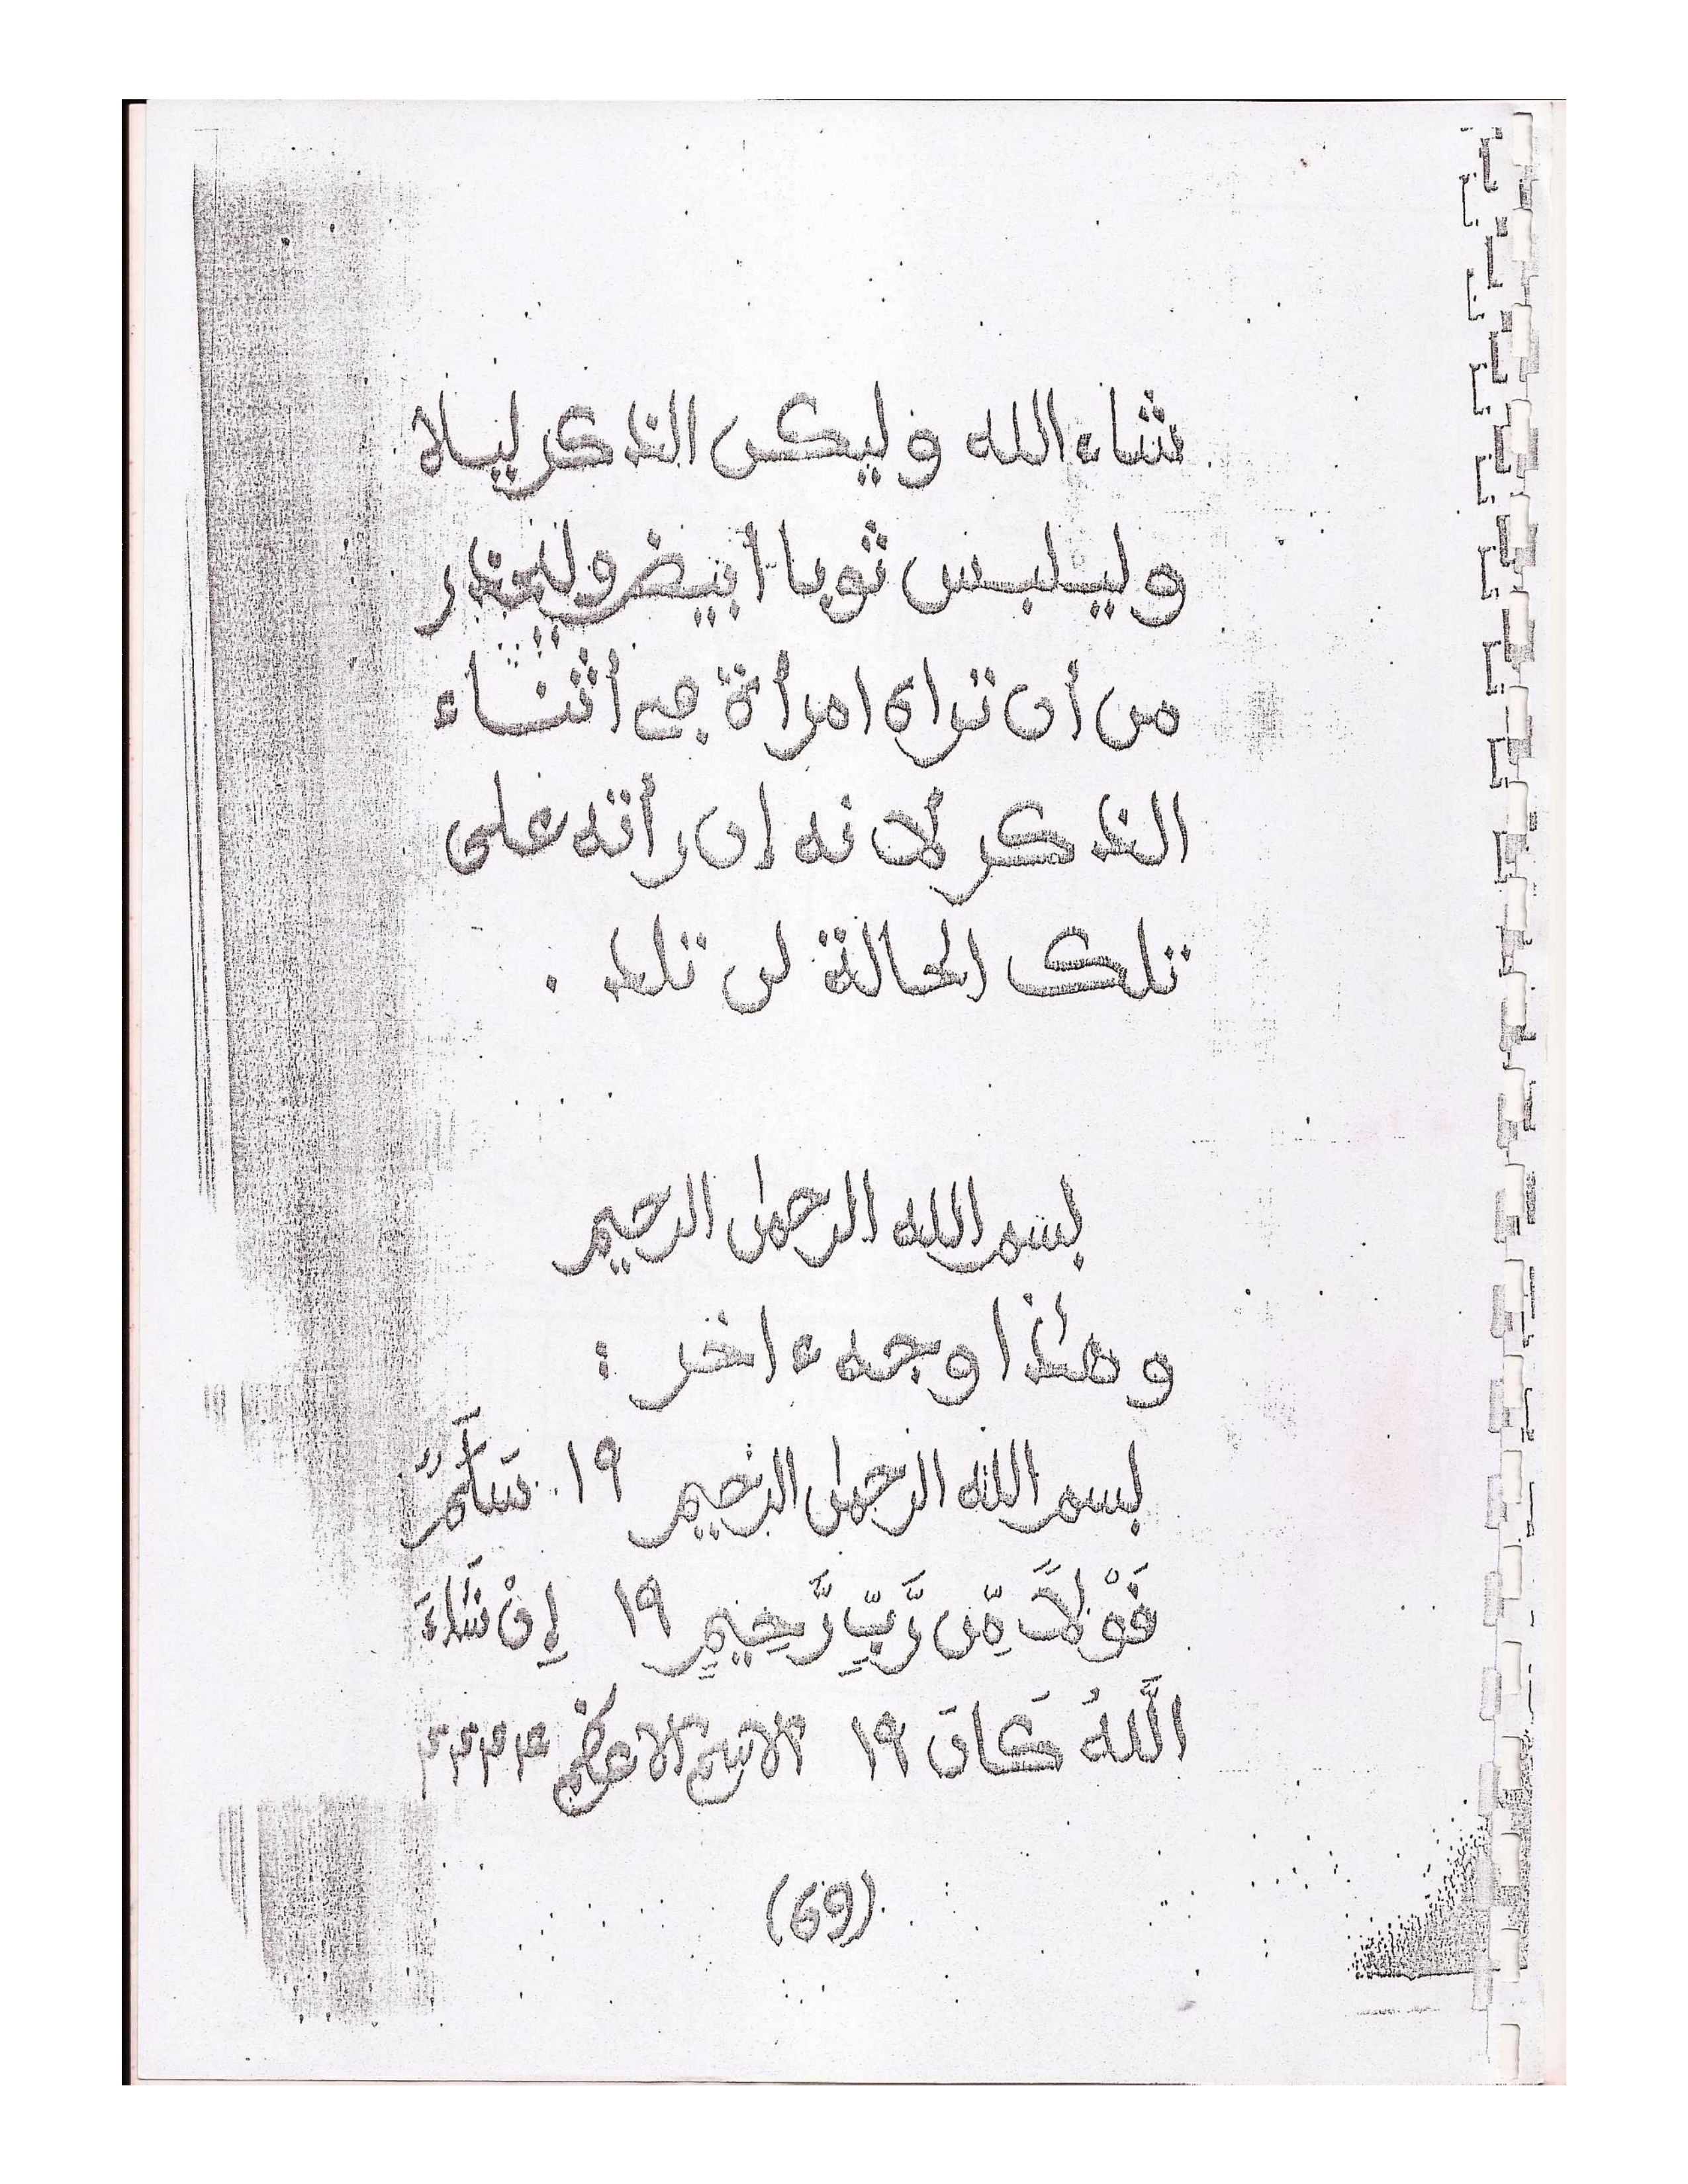 شاء الله وليكن الذكر ليلا
وليلبس ثوبا أبيض وليحذر
من أن تراه امرأة في أثناء
الذكر لانه إن رأته على
تلك الحالة لن تلد .
بسم الله الرحمن الرحيم
وهذا وجه ءاخر :
بسم الله الرحمن الرحيم ١٩ سَلَٰمٌ
قَوْلاً مِّن رَّبٍّ رَّحِيمٍ ١٩ إِنْ شَاءَ
اللَّهُ كَانَ ١٩ الاسم الاعظم
(69)